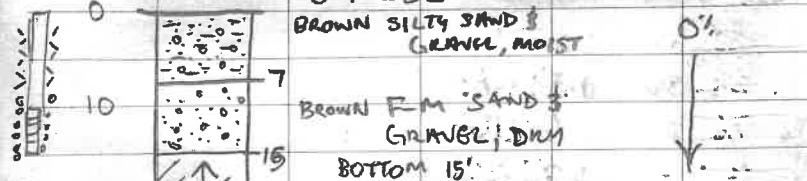 0
BROWN SILTY SAND &
GRAVEL, MOIST
0%
7
10
BROWN F-M SAND &
GRAVEL, DRY
15
BOTTOM 15'